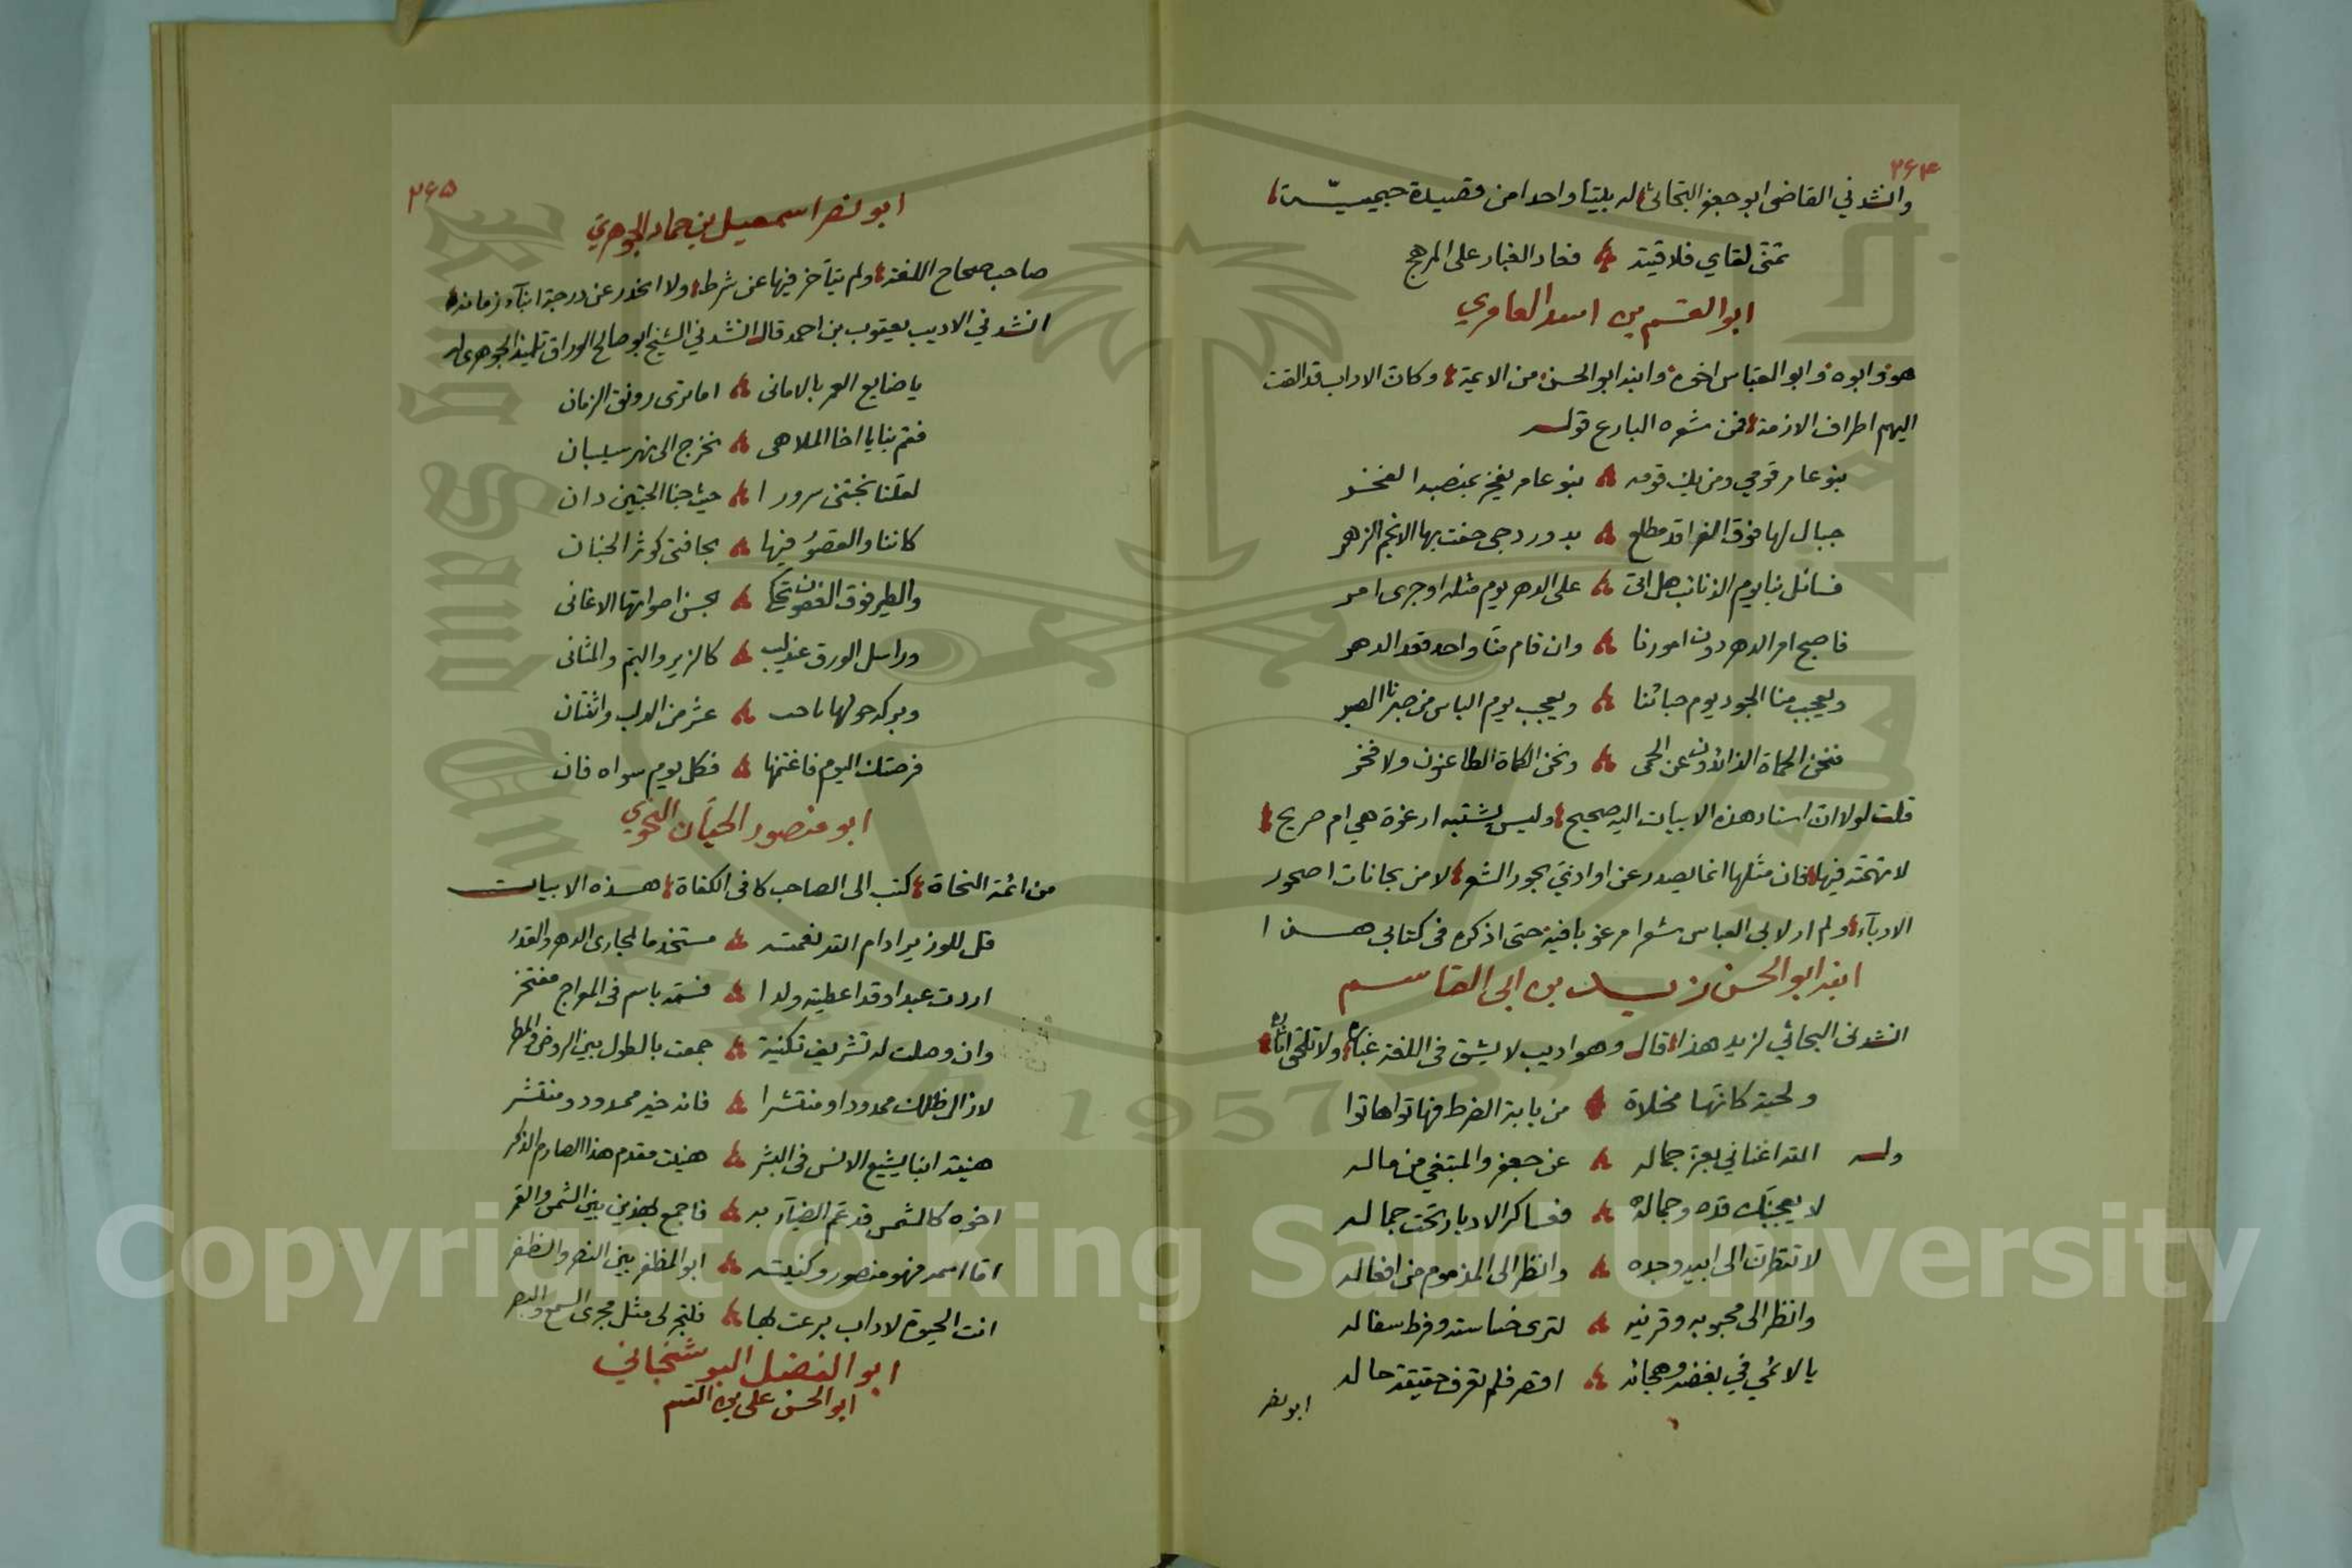 ٣۶۴
وانشدني القاضى ابو جعفر البحاثى له بيتا واحدا من قصيدة جيمية
تمنى لقاي فلاقيته فعاد الغبار على المرهج
ابو القسم بن اسد العامري
هو وابوه وابو العباس اخوه وابنه ابو الحسن من الايمة وكان الاداب قد القت
اليهم اطراف الازمة فمن شعره البارع قوله
بنو عامر قومي ومن يك قومه بنو عامر يفخر بمنصبه الفخر
جبال لها فوق الفراقد مطلع بدور دجى حفت بها الانجم الزهر
فسائل بنا يوم الذنائب هل اتى على الدهر يوم مثله او جرى امر
فاصبح امر الدهر دون امورنا وان قام منا واحد قعد الدهر
ويعجب منا الجود يوم حبائنا ويعجب يوم الباس من صبرنا الصبر
فنحن الحماة الذائدون عن الحمى ونحن الكماة الطاعنون ولا فخر
قلت لولا ان اسناد هذه الابيات اليه صحيح وليس يشتبه ارغوة هي ام صريح
لاتهمته فيها فان مثلها انما يصدر عن اواذي بحور الشعر لا من بجانات اصحور
الادبآء ولم ار لابي العباس شعرا مرغوبا فيه حتى اذكره فى كتابى هذا
ابنه ابو الحسن زيد بن ابى القاسم
انشدنى البحاثي لزيد هذا قال وهو اديب لا يشق فى اللغة غباره ولا تلتحى اثاره
ولحية كانها مخلاة من بابة الضرط فهاتوا هاتوا
وله الله اغناني بعزة جماله عن جعفر والمبتغي من ماله
لا يعجبنك قده وجماله فعساكر الادبار تحت جماله
لا تنظرن الى ابيه وجده وانظر الى المذموم من افعاله
وانظر الى محبوبه وقرينه لترى خساسته وفرط سفاله
يا لائمي في بغضه وهجائه اقصر فلم تعرف حقيقة حاله
ابو نصر
٣۶۵
ابو نصر اسمعيل بن حماد الجوهري
صاحب صحاح اللغة ولم يتأخر فيها عن شرطه ولا انحدر عن درجة ابنآء زمانه
انشدني الاديب يعقوب بن احمد قال انشدني الشيخ ابو صالح الوراق تلميذ الجوهرى له
يا ضايع العمر بالامانى اما ترى رونق الزمان
فقم بنا يا اخا الملاهى نخرج الى نهر سبسبان
لعلنا نجتنى سرورا حيث جنا الجنتين دان
كاننا والقصور فيها بحافتى كوثر الجنان
والطير فوق الغصون تحكى بحسن اصواتها الاغانى
وراسل الورق عندليب كالزير والبم والمثانى
وبركة حولها اناخت عشر من الدلب واثنتان
فرصتك اليوم فاغتنمها فكل يوم سواه فان
ابو منصور الحيان النحوي
من ائمة النحاة كتب الى الصاحب كافى الكفاة هذه الابيات
قل للوزير ادام الله نعمته مستخدما لمجارى الدهر والقدر
اردت عبدا وقد اعطيته ولدا فسمه باسم فى المواج مفتخر
وان وصلت له تشريف تكنية جمعت بالطول بين الروض والمطر
لا زال ظلك ممدودا ومنتشرا فانه خير ممدود ومنتشر
هنيته ابنا يشيع الانس فى البشر هنيت مقدم هذا الصارم الذكر
اخوه كالشمس قد عم الضيآء به فاجمع بهذين بين الشمس والقمر
اما اسمه فهو منصور وكنيته ابو المظفر بين النصر والظفر
انت الحيوة لاداب برعت بها فلتجر لى مثل مجرى السمع والبصر
ابو الفضل البوشنجاني
ابو الحسن على بن القسم
Copyright © King Saud University
King Saud University
جامعة الملك سعود
1957